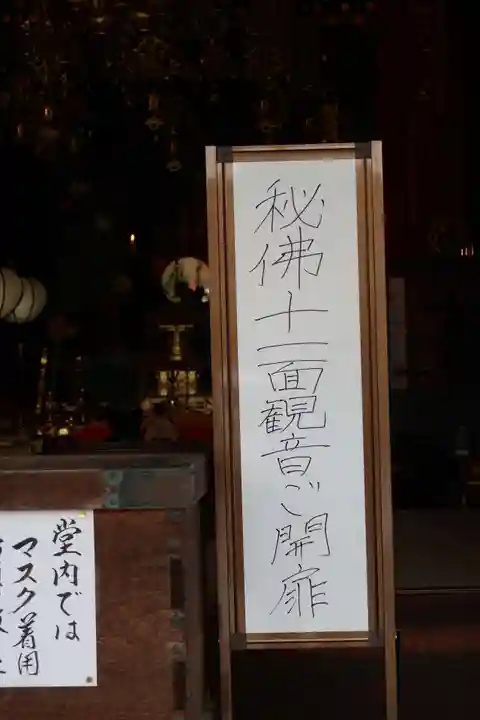 秘佛十一面観音ご開扉
堂内では
マスク着用